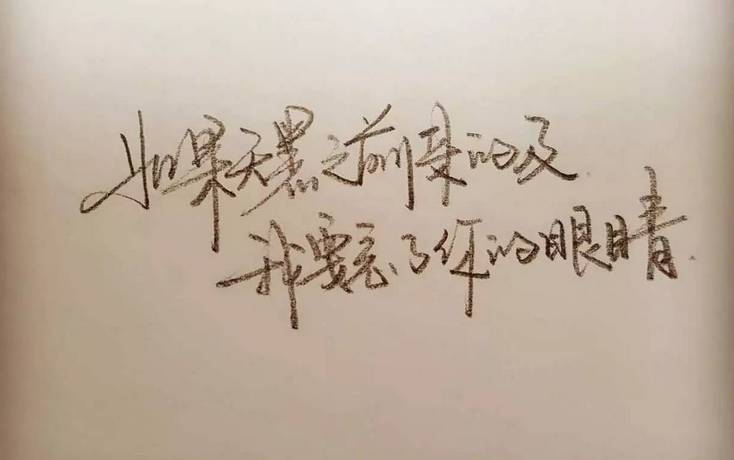 如果天黑之前来的及
我要忘了你的眼睛